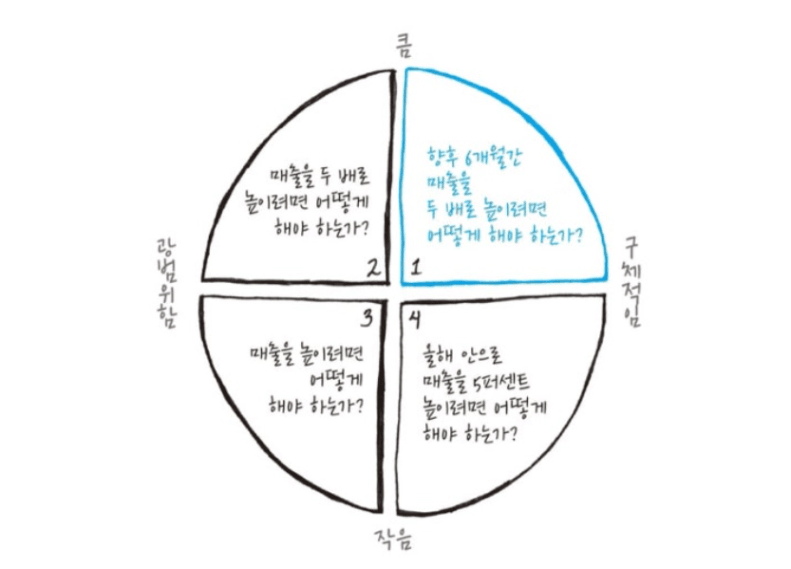 큼
매출을 두 배로
높이려면 어떻게
해야 하는가?
2
향후 6개월간
매출을
두 배로 높이려면
어떻게 해야 하는가?
1
광범위함
구체적임
3
매출을 높이려면
어떻게
해야 하는가?
4
올해 안으로
매출을 5퍼센트
높이려면 어떻게
해야 하는가?
작음